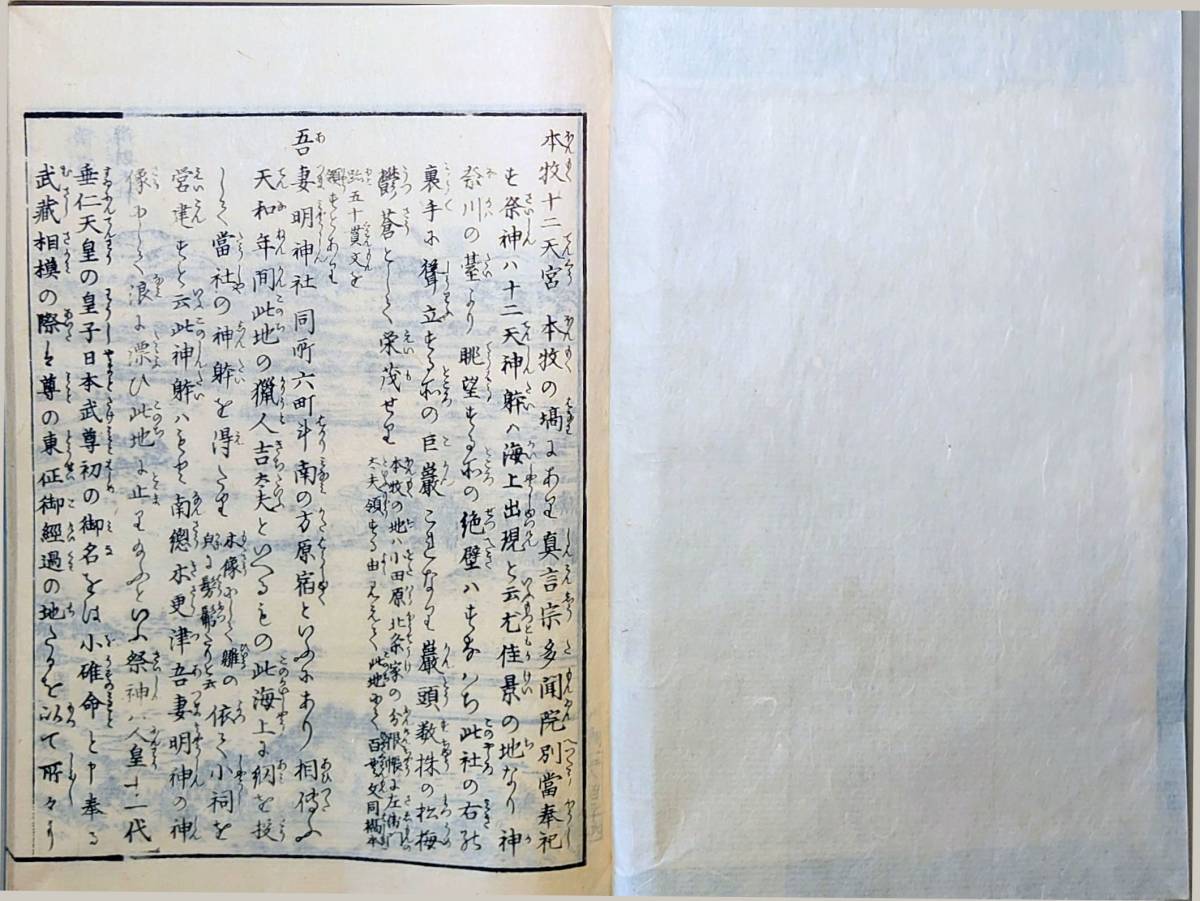 本牧十二天宮 本牧の塙にあり真言宗多聞院別當奉祀
す祭神ハ十二天神躰ハ海上出現と云尤佳景の地なり神
奈川の臺より眺望する所の絶壁ハすなハち此社の右の
裏手に聳立する所の巨巖これなり巖頭数株の松梅
鬱蒼として栄茂せり 本牧の地ハ小田原北条家の分限帳に左衛門
大夫領する由見えて此地にて百廿二文同
貫五十貫文を
領すとあり
吾妻明神社 同所六町斗南の方原宿といふにあり相傳ふ
天和年間此地の獵人吉六夫といへるもの此海上に網を投
して當社の神躰を得たり 木像にして雛の
に髣髴たりと云 依て小祠を
営建すと云此神躰ハもと南總木更津吾妻明神の神
像にして浪に漂ひ此地に止りぬといふ祭神ハ人皇十二代
垂仁天皇の皇子日本武尊初の御名をは小碓命と申奉る
武藏相模の際は尊の東征御經過の地たるを以て所々に